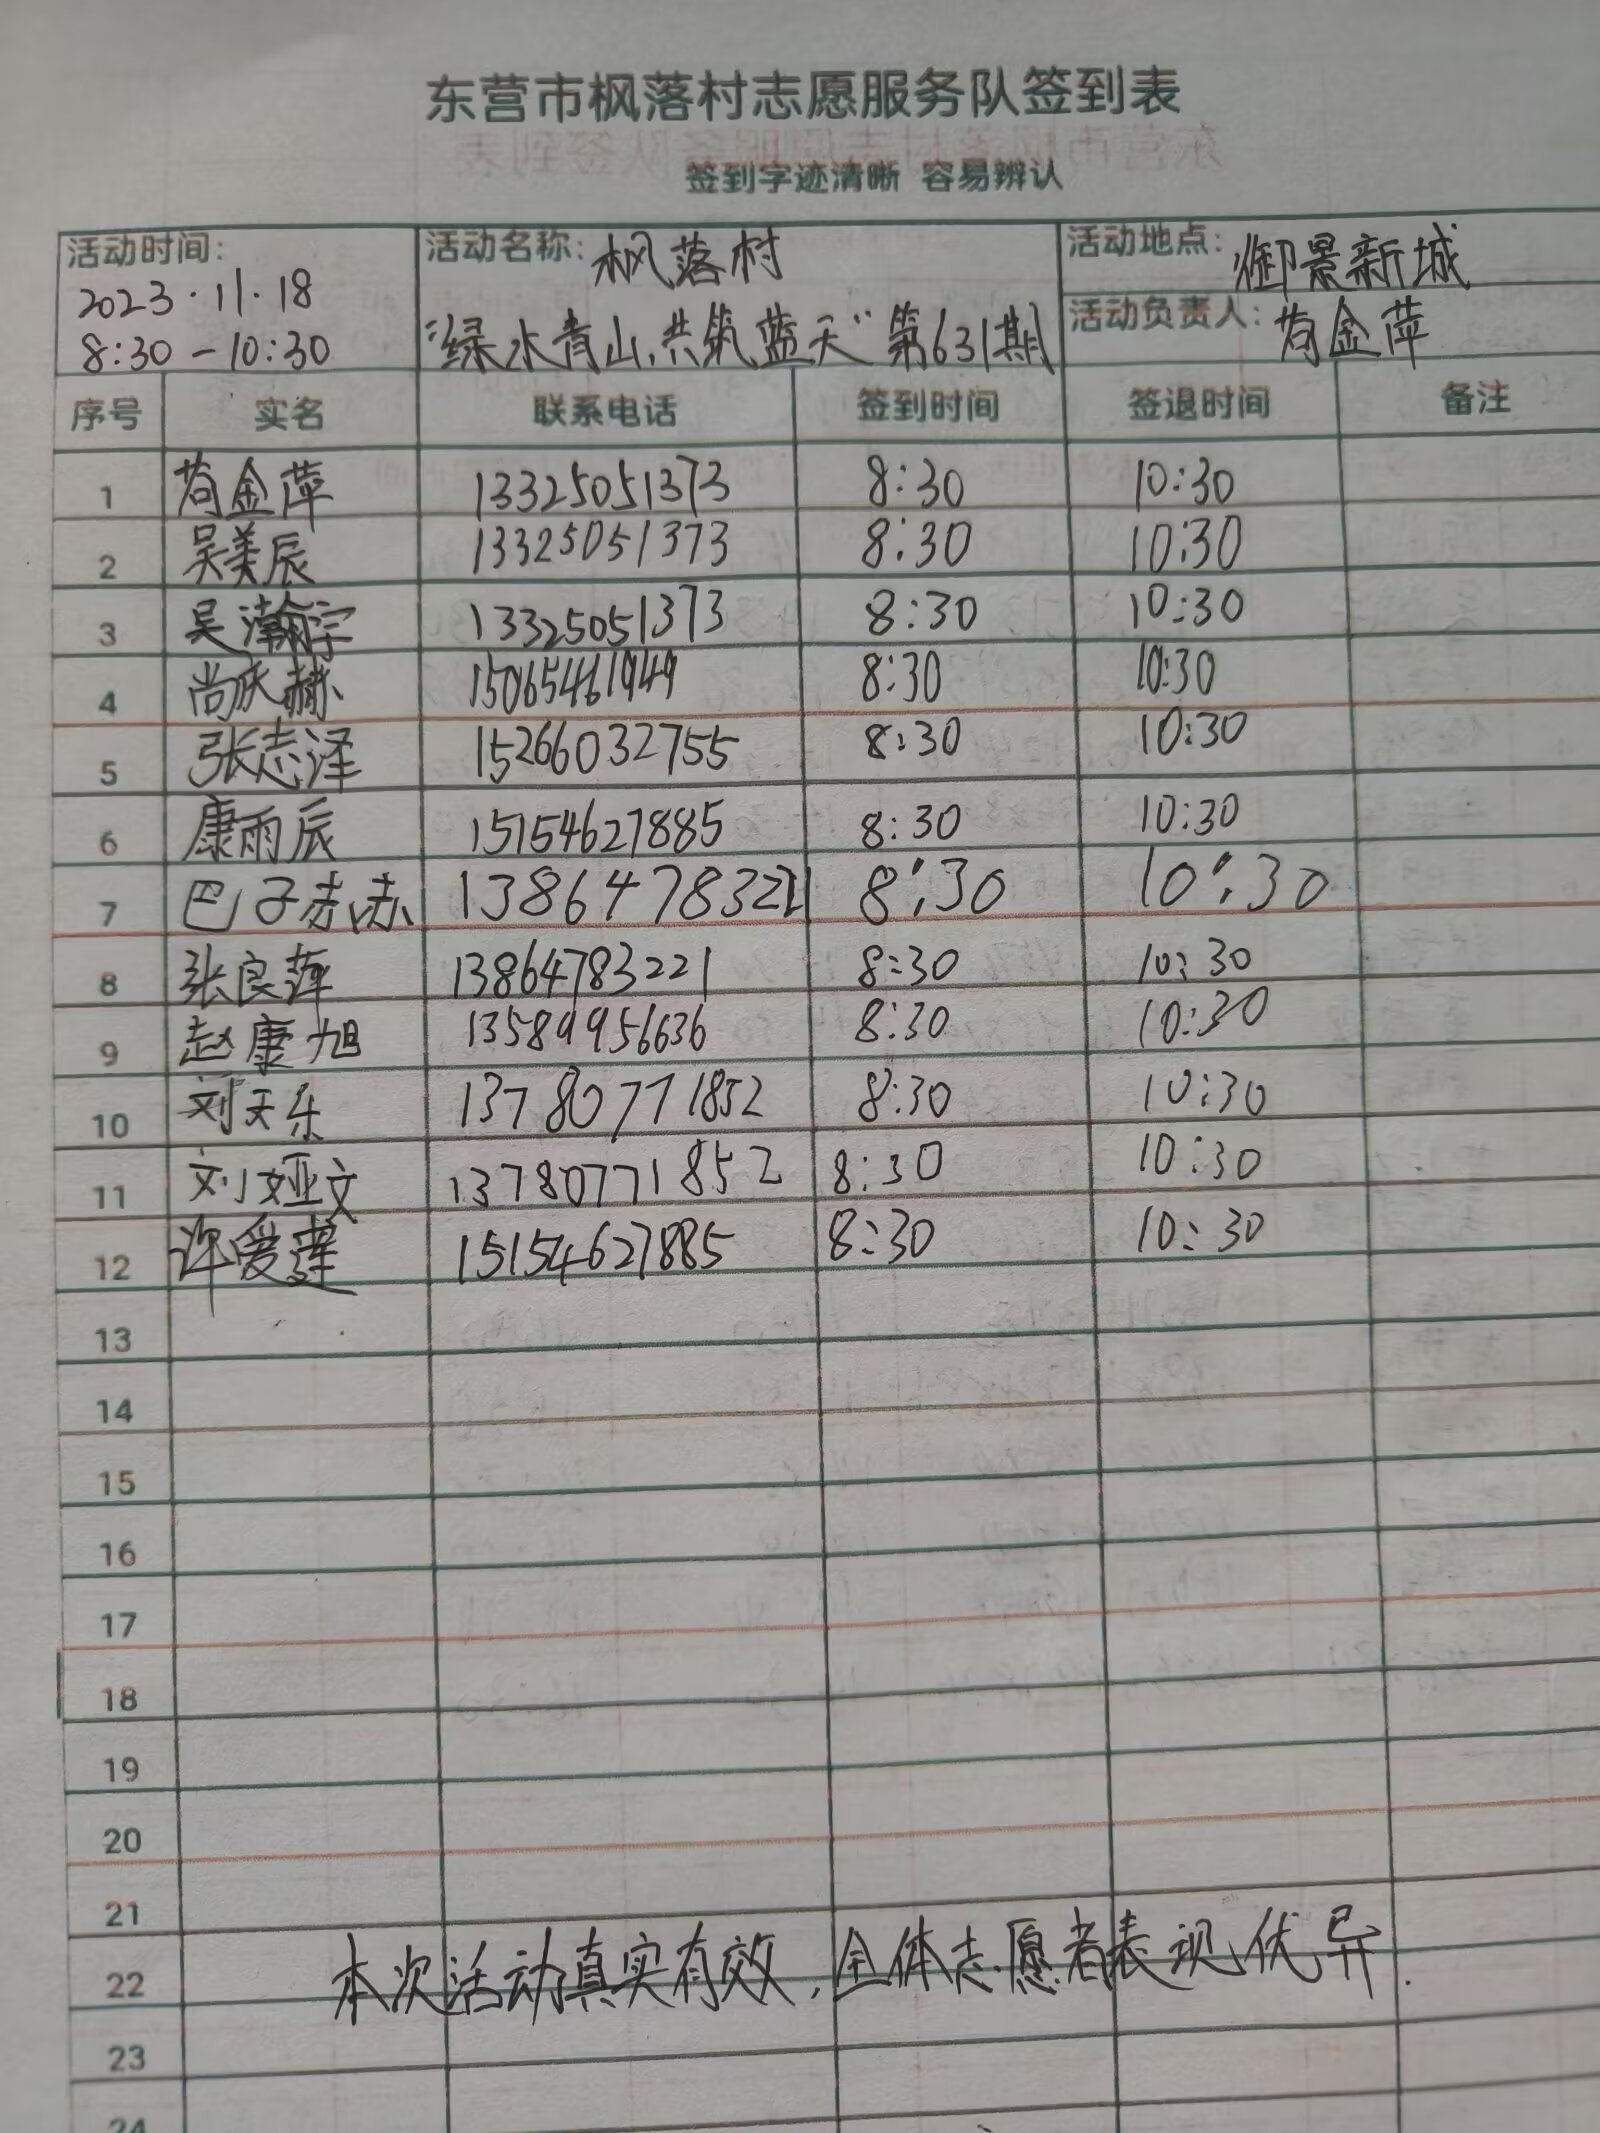 东营市枫落村志愿服务队签到表
签到字迹清晰 容易辨认
活动时间: 2023.11.18 8:30-10:30
活动名称: 枫落村 "绿水青山,共筑蓝天"第631期
活动地点: 御景新城
活动负责人: 苟金萍
序号 实名 联系电话 签到时间 签退时间 备注
1 苟金萍 13325051373 8:30 10:30
2 吴美辰 13325051373 8:30 10:30
3 吴瀚宇 13325051373 8:30 10:30
4 尚庆赫 15065461949 8:30 10:30
5 张志泽 15266032755 8:30 10:30
6 康雨辰 15154627885 8:30 10:30
7 巴子赫 13864783221 8:30 10:30
8 张良萍 13864783221 8:30 10:30
9 赵康旭 13589956636 8:30 10:30
10 刘天乐 13780771852 8:30 10:30
11 刘娅文 13780771852 8:30 10:30
12 许爱莲 15154627885 8:30 10:30
13
14
15
16
17
18
19
20
21
22 本次活动真实有效,全体志愿者表现优异.
23
24